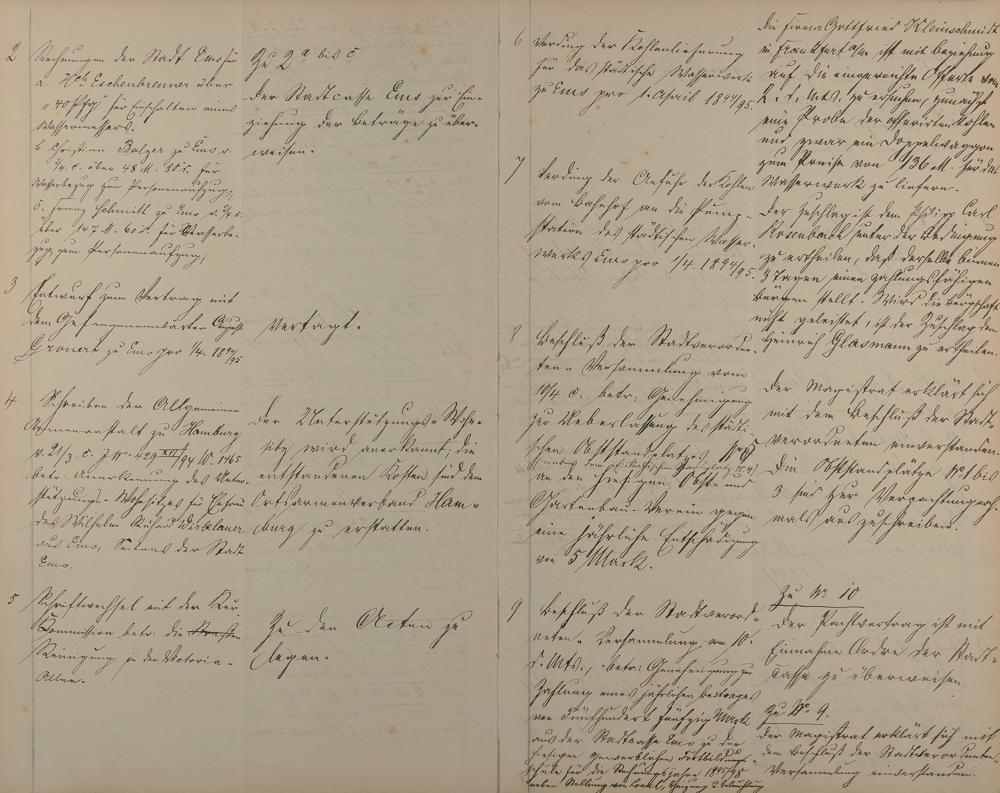 2 Rechnungen der Stadt Ems für
a. Wb. Eschenbrenner über
"40 Pfg" für Einschalten eines
Wassermessers.
b. Christian Balzer zu Ems v.
7/4. c. über 48 M. 80 S. für
Wasserbezug zum Personenaufzug,
c. Franz Schmitt zu Ems v. 7/4. c.
über 147 M. 60 S. für Wasserbe-
zug zum Personenaufzug,
Zu 2 a bis c
Der Stadtcasse Ems zur Ein-
ziehung der Beträge zu über-
weisen.
3 Entwurf zum Vertrag mit
dem Gefangenenwärter August
Gronert zu Ems pro 1/4. 1894/95
Vertagt.
4 Schreiben der Allgemeinen
Armenanstalt zu Hamburg
v. 21/3. c. J. No. 429 XVI/94 W. 1465
betr. Anerkennung des Unter-
stützungs-Wohnsitzes für Ehefrau
des Wilhelm
aus Ems, Seitens der Stadt
Ems.
Der Unterstützungs-Wohn-
sitz wird anerkannt, die
entstandenen Kosten sind dem
Ortsarmenverband Ham-
burg zu erstatten.
5 Schriftwechsel mit der Kur-
Commission betr. die
Reinigung in der Victoria-
Allee.
Zu den Acten zu
legen.
6 Verding der Kohlenlieferung
für das städtische Wasserwerk
zu Ems pro 1. April 1894/95.
Die Firma Gottfried Kleinschmidt
in Frankfurt a/m ist mit Beziehung
auf die eingereichte Offerte vom
2. d. Mts. zu ersuchen, zunächst
eine Probe der offerirten Kohlen
und zwar ein Doppelwaggon
zum Preise von 136 M. für das
Wasserwerk zu liefern.
7 Verding der Anfuhr der Kohlen
vom Bahnhof an die Pump-
station des städtischen Wasser-
werks Ems pro 1/4. 1894/95.
Der Zuschlag ist dem Philipp Carl
Rosenbach unter der Bedingung
zu ertheilen, daß derselbe binnen
3 Tagen einen zahlungsfähigen
Bürgen stellt. Wird die Bürgschaft
nicht geleistet, ist der Zuschlag dem
Heinrich Glasmann zu ertheilen.
8 Beschluß der Stadtverordne-
ten-Versammlung vom
10/4. c. betr. Genehmigung
zur Ueberlassung des städti-
schen Obststandplatzes
an den hiesigen Obst- und
Gartenbau-Verein gegen
eine jährliche Entschädigung
von 5 Mark.
Der Magistrat erklärt sich
mit dem Beschluß der Stadt-
verordneten einverstanden.
Die Obststandplätze No. 1 bis
3 sind zur Verpachtung noch-
mals auszuschreiben.
Zu No 10
Der Pachtvertrag ist mit
Einnahme Ordre der Stadt-
casse zu überweisen.
9 Beschluß der Stadtverord-
neten-Versammlung vom 10.
d. Mts., betr. Genehmigung zur
Zahlung eines jährlichen Beitrages
von Fünfhundert fünfzig Mark
aus der Stadtcasse Ems zu der
hiesigen gewerblichen Fortbildungs-
schule für die Rechnungsjahre 1895/98
neben Stellung von Local, Heizung u. Beleuchtung
Zu No 9.
Der Magistrat erklärt sich mit
dem Beschluß der Stadtverordneten-
Versammlung einverstanden.